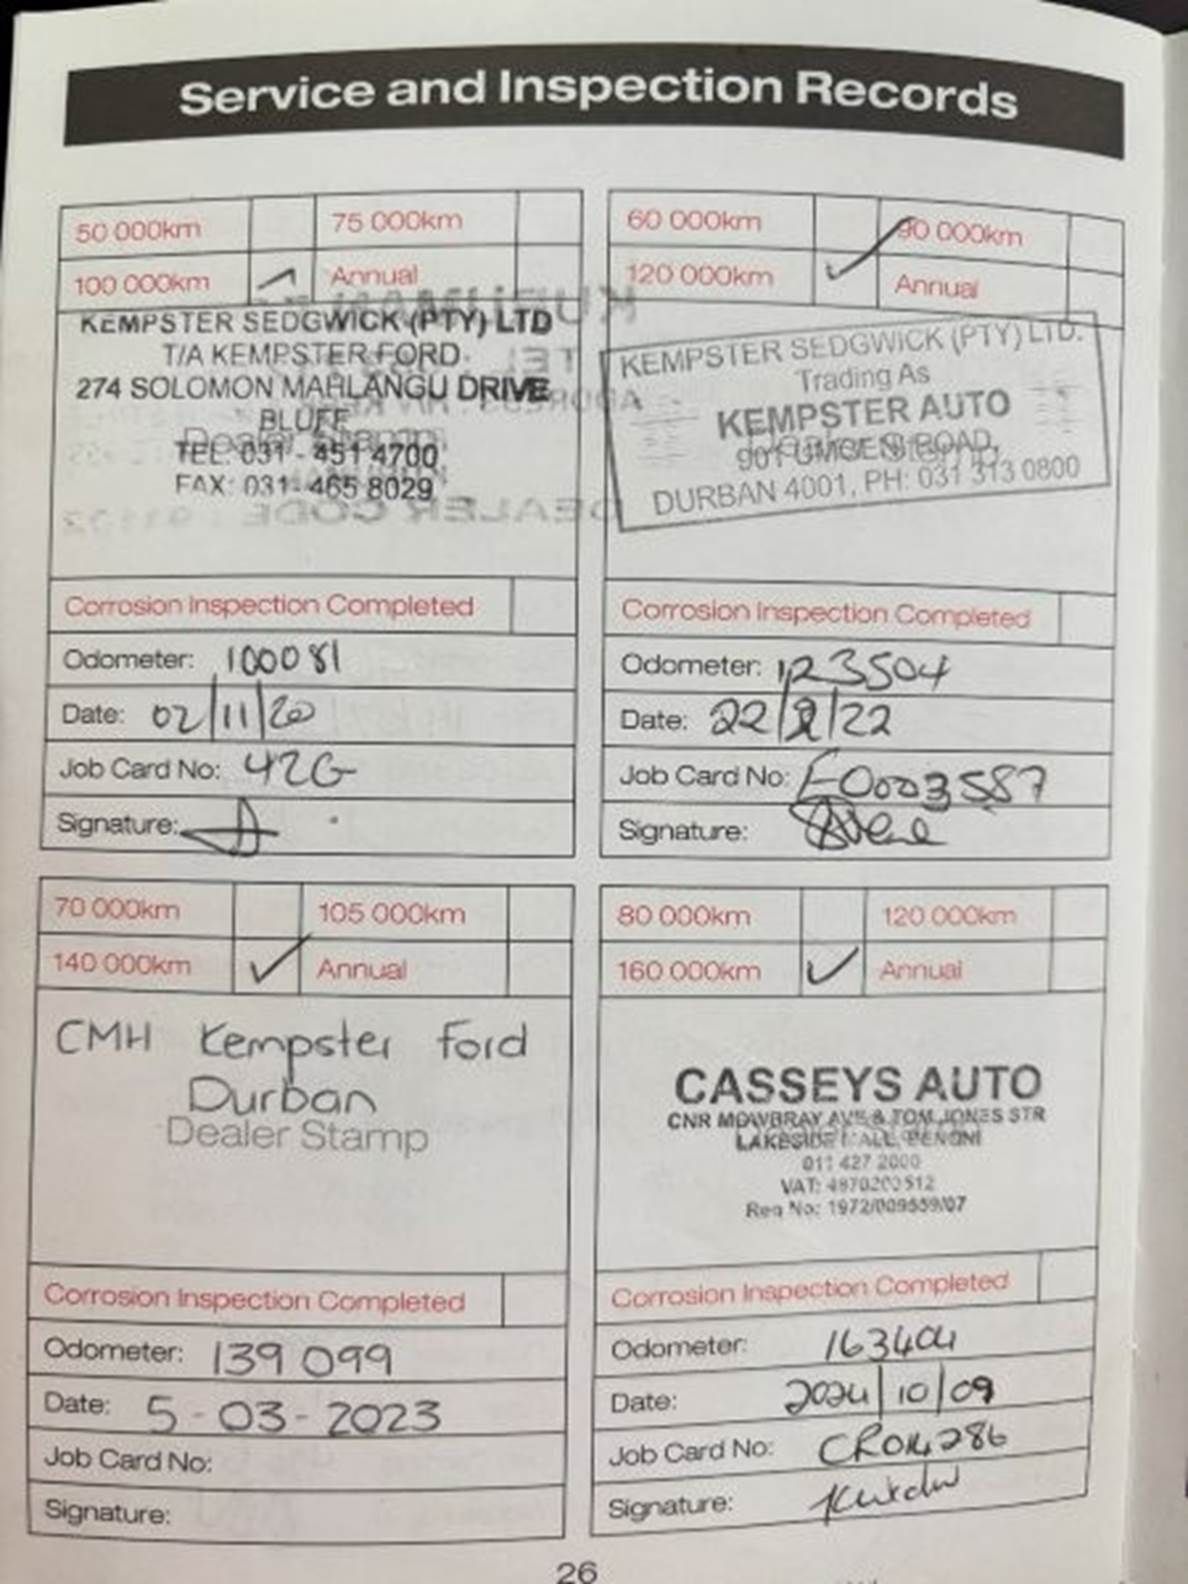 Service and Inspection Records
50 000km 75 000km
100 000km Annual
KEMPSTER SEDGWICK (PTY) LTD
T/A KEMPSTER FORD
274 SOLOMON MAHLANGU DRIVE
BLUFF
Dealer Stamp
TEL: 031 - 451 4700
FAX: 031- 465 8029
Corrosion Inspection Completed
Odometer: 100081
Date: 02/11/20
Job Card No: 42G
Signature:
60 000km 90 000km
120 000km Annual
KEMPSTER SEDGWICK (PTY) LTD.
Trading As
KEMPSTER AUTO
901 UMGENI ROAD,
DURBAN 4001, PH: 031 313 0800
Corrosion Inspection Completed
Odometer: 123504
Date: 22/2/22
Job Card No: E0003587
Signature:
70 000km 105 000km
140 000km Annual
CMH Kempster Ford
Durban
Dealer Stamp
Corrosion Inspection Completed
Odometer: 139 099
Date: 5-03-2023
Job Card No:
Signature:
80 000km 120 000km
160 000km Annual
CASSEYS AUTO
CNR MOWBRAY AVE & TOM JONES STR
LAKESIDE MALL, BENONI
011 427 2000
VAT: 4870200512
Reg No: 1972/009559/07
Corrosion Inspection Completed
Odometer: 163404
Date: 2024/10/09
Job Card No: CR014286
Signature:
26